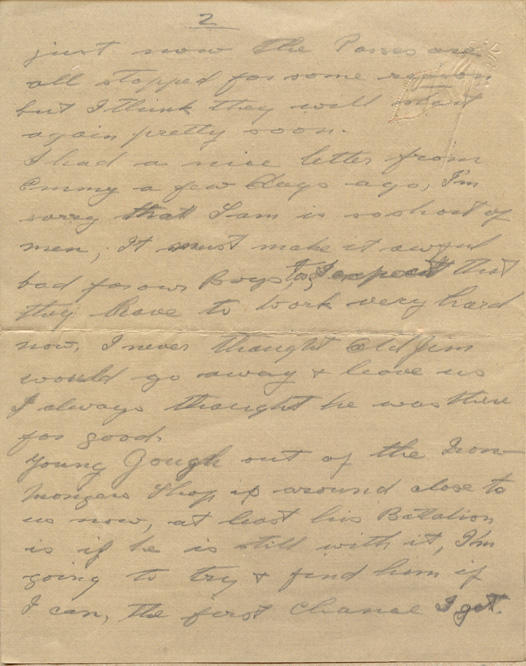 2
just now the Passes are
all stopped for some reason
but I think they will start
again pretty soon.
I had a nice letter from
Emmy a few days ago, I'm
sorry that Sam is so short of
men, It must make it awful
bad for our Boys, too, I expect that
they have to work very hard
now, I never thought Old Jim
would go away & leave us
I always thought he was there
for good.
Young Gough out of the Iron-
mongers Shop is around close to
us now, at least his Batalion
is if he is still with it, I'm
going to try & find him if
I can, the first chance I get.